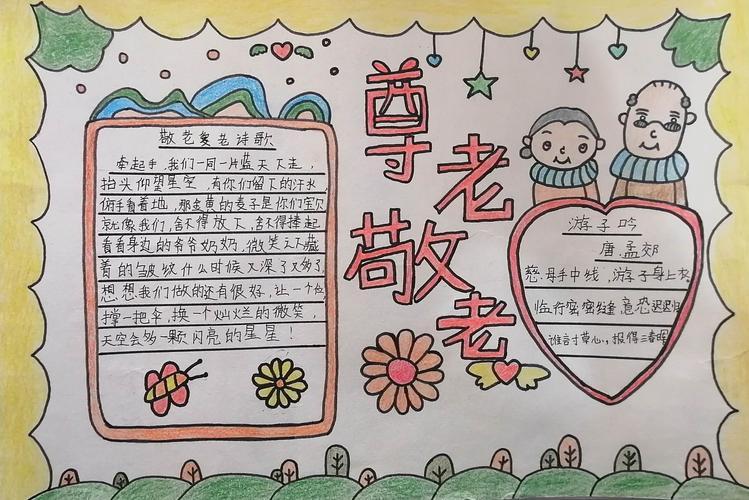 敬老爱老诗歌
牵起手,我们一同一片蓝天下走,
抬头仰望星空,有你们留下的汗水,
俯手看着地,那金黄的麦子是你们宝贝
就像我们,舍不得放下,舍不得捧起
看看身边的爷爷奶奶,微笑之下藏
着的皱纹什么时候又深了又多了
想想我们做的还有很好,让一个位
撑一把伞,换一个灿烂的微笑,
天空会多一颗闪亮的星星!
尊老
敬老
游子吟
唐孟郊
慈母手中线,游子身上衣
临行密密缝,意恐迟迟归
谁言寸草心,报得三春晖